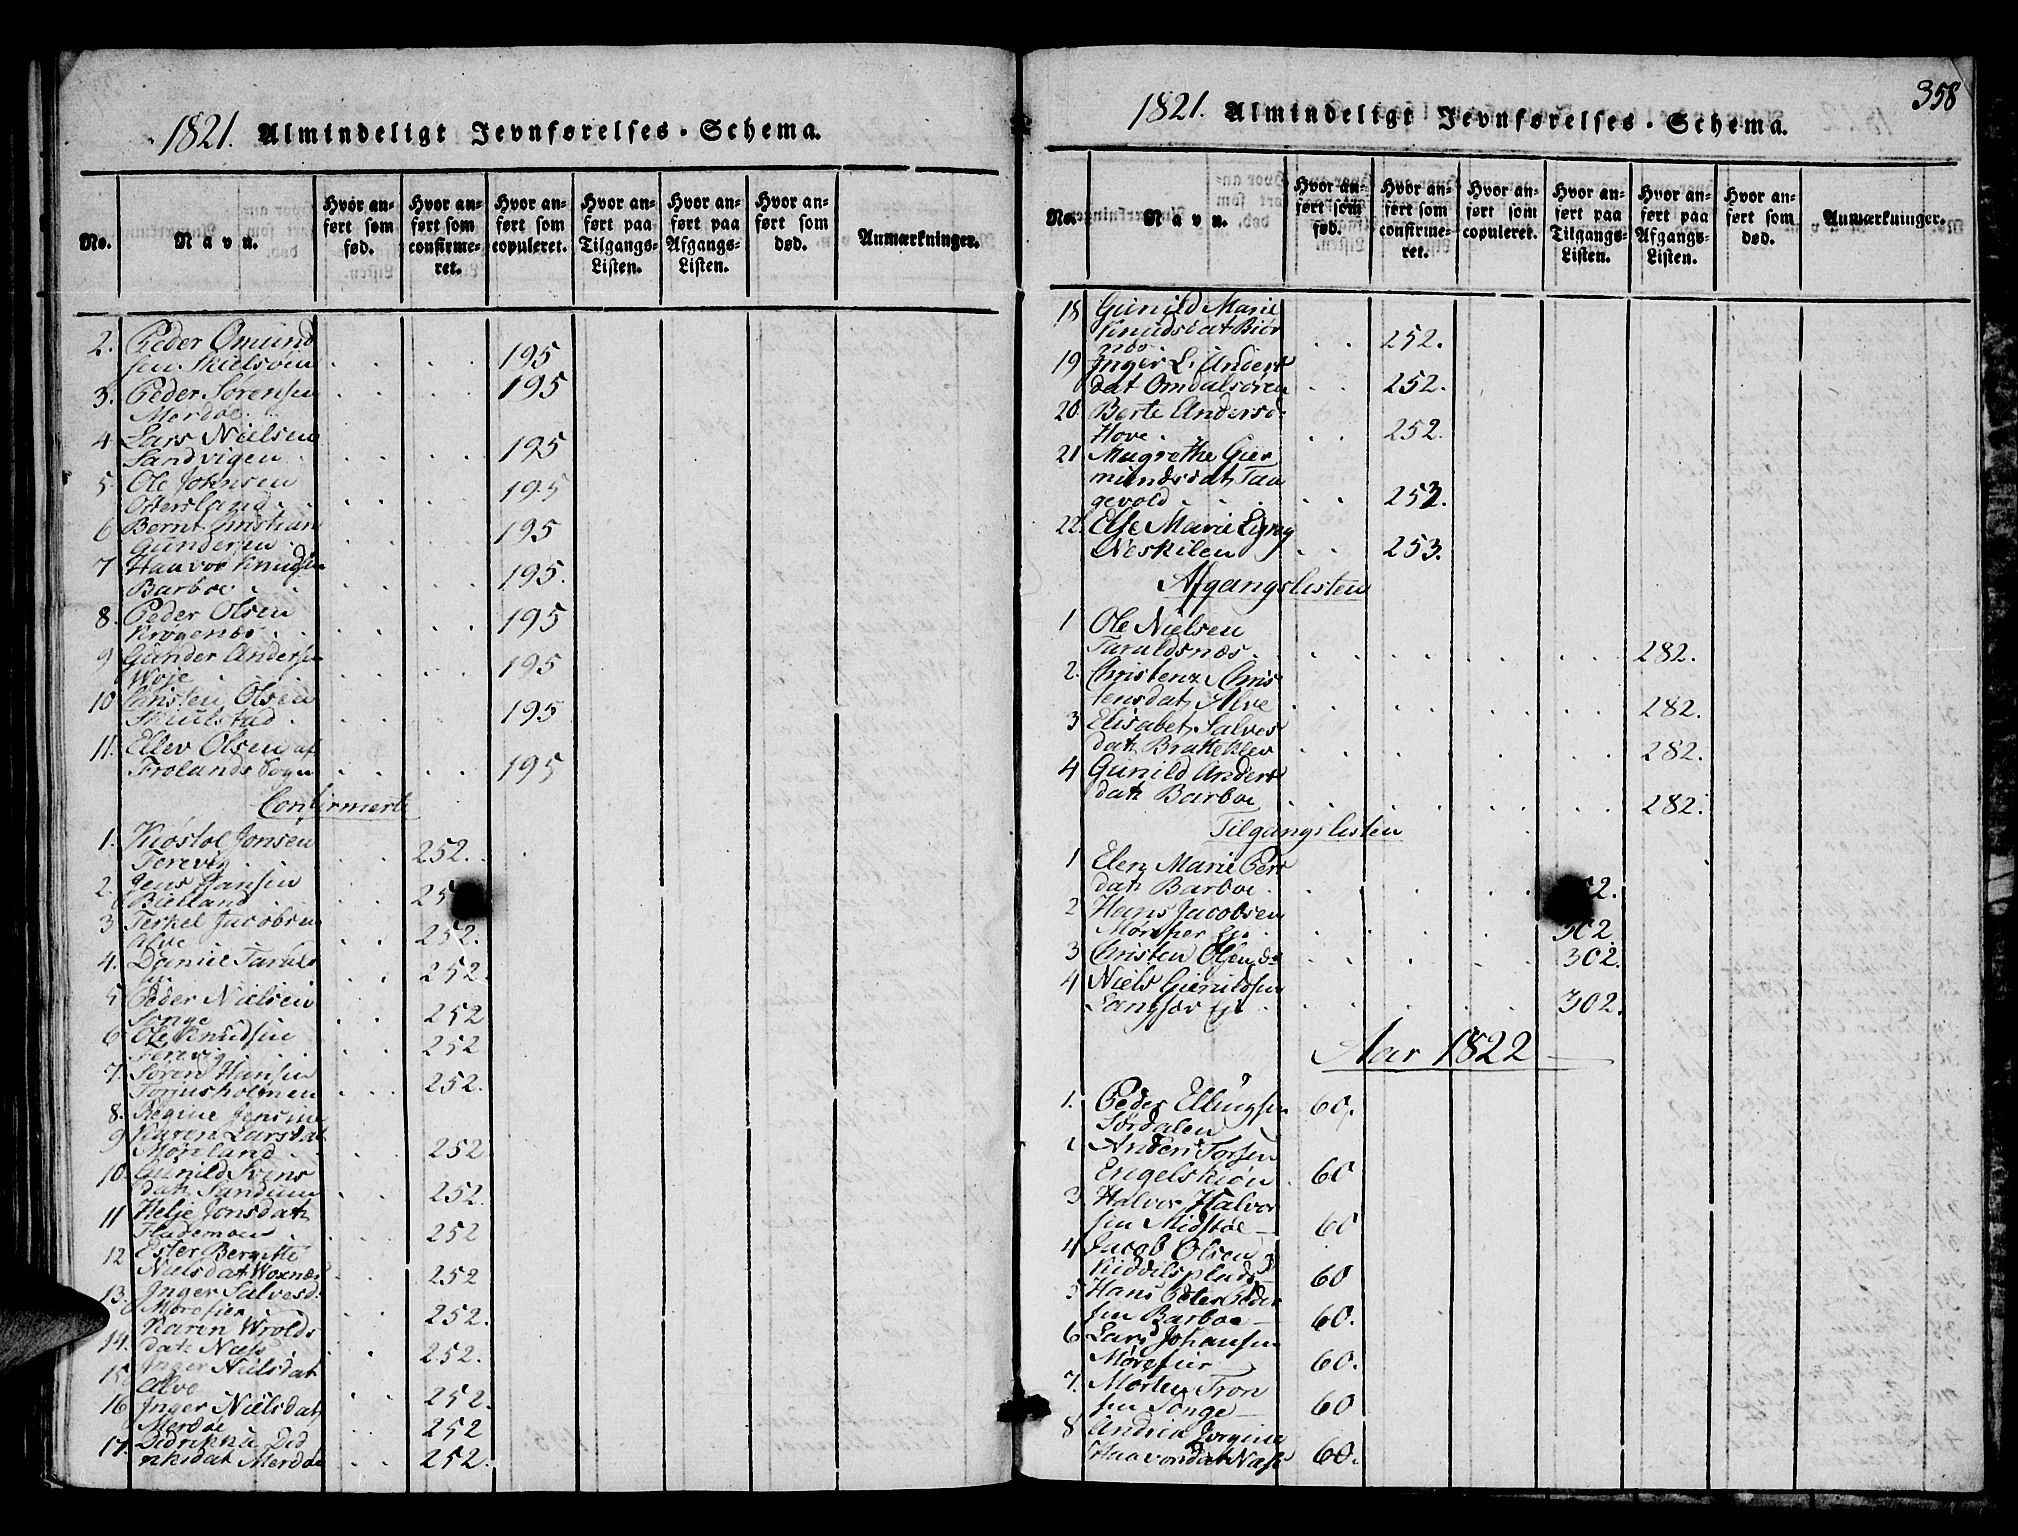 1821. Almindeligt Jevnførelses-Schema.
No.
Navn.
Hvor anført som fød.
Hvor anført som confirmeret.
Hvor anført som copuleret.
Hvor anført paa Tilgangs-Listen.
Hvor anført paa Afgangs-Listen.
Hvor anført som død.
Anmærkninger.
2. Peder Omund
sen Skielsøen . . . . 195
3. Peder Sørensen . . . . 195
Merdøe
4 Lars Nielsen
Sandvigen . . . . 195
5 Ole Johnsen
Ottersland . . . . 195
6 Bernt Christian
Gundersen . . . . 195
7 Haavor Knudsen
Barboe . . . . 195.
8. Peder Olsen
Krøgenæs . . . . 195
9 Gunder Anders
Woje . . . . 195
10 Christen Olsen
Skulstad . . . . 195
11. Ellev Olsen af
Frolands Sogn . . . . 195
Confirmerte
1. Kiøstol Jonsen
Terevig . . 252.
2. Jens Hansen
Bieland . . 25
3 Terkel Jacobsen
Alve . . 252.
4. Daniel Tarkels
sen . . 252.
5 Peder Nielsen
Songe . . 252
6 Ole Knudsen
Terevig . . 252
7. Søren Hansen
Torjusholmen . . 252.
8. Regine Jensen
9 Karen Larsdat
Mørland . . 252
10. Gunild Svens
dat Sandum . . 252.
11 Helje Jonsdat
Flademoen . . 252
12 Ester Bergitte
Nielsdat Woxnæs . . 252
13. Inger Salvesd.
Morefier . . 252.
14. Karen Wrolds
dat Næss . . 252.
15 Inger Nielsdat
Alve . . 252.
16 Inger Nielsdat
Merdøe . . 252
17. Didrikka Did
riksdat Merdøe . . 252.
358
1821. Almindeligt Jevnførelses-Schema.
No.
Navn.
Hvor anført som fød.
Hvor anført som confirmeret.
Hvor anført som copuleret.
Hvor anført paa Tilgangs-Listen.
Hvor anført paa Afgangs-Listen.
Hvor anført som død.
Anmærkninger.
18 Gunild Marie
Knudsdat Biør
næs . . 252.
19 Inger L. Anders
dat Omdalsøren . . 252.
20 Berte Andersd
Hove . . 252.
21 Magrethe Gier
mundsdat Tan
gevold . . 252.
22. Else Marie
Neskilen . . 253.
Afgangslisten
1 Ole Nielsen
Taraldsnæs . . . . 282.
2. Christenz Chris
tensdat Alve . . . . 282.
3 Elisabet Salves
dat Bratteklev . . . . 282.
4 Gunild Anders
dat Barboe . . . . 282.
Tilgangslisten
1 Elen Marie Pers
dat Barboe . . . . 2.
2 Hans Jacobsen
Morefier . . . . 302
3 Christen Olsen do . . . . 302.
4 Niels Gunildsen
Langsæv . . . . 302.
Aar 1822
1. Peder Ellingsen 60.
Sørdalen
2 Anders Torsen
Engelskiøn . 60
3. Halvor Halvor
sen Midtbøe 60
4 Jacob Olsen
Kiddelsplads 60
5 Hans Peter Peder
sen Barboe 60.
6 Lars Johansen
Mørefier 60.
7. Morten Tron
sen Songe 60
8 Andrea Jorgine
Haavorsdat Næss 60.